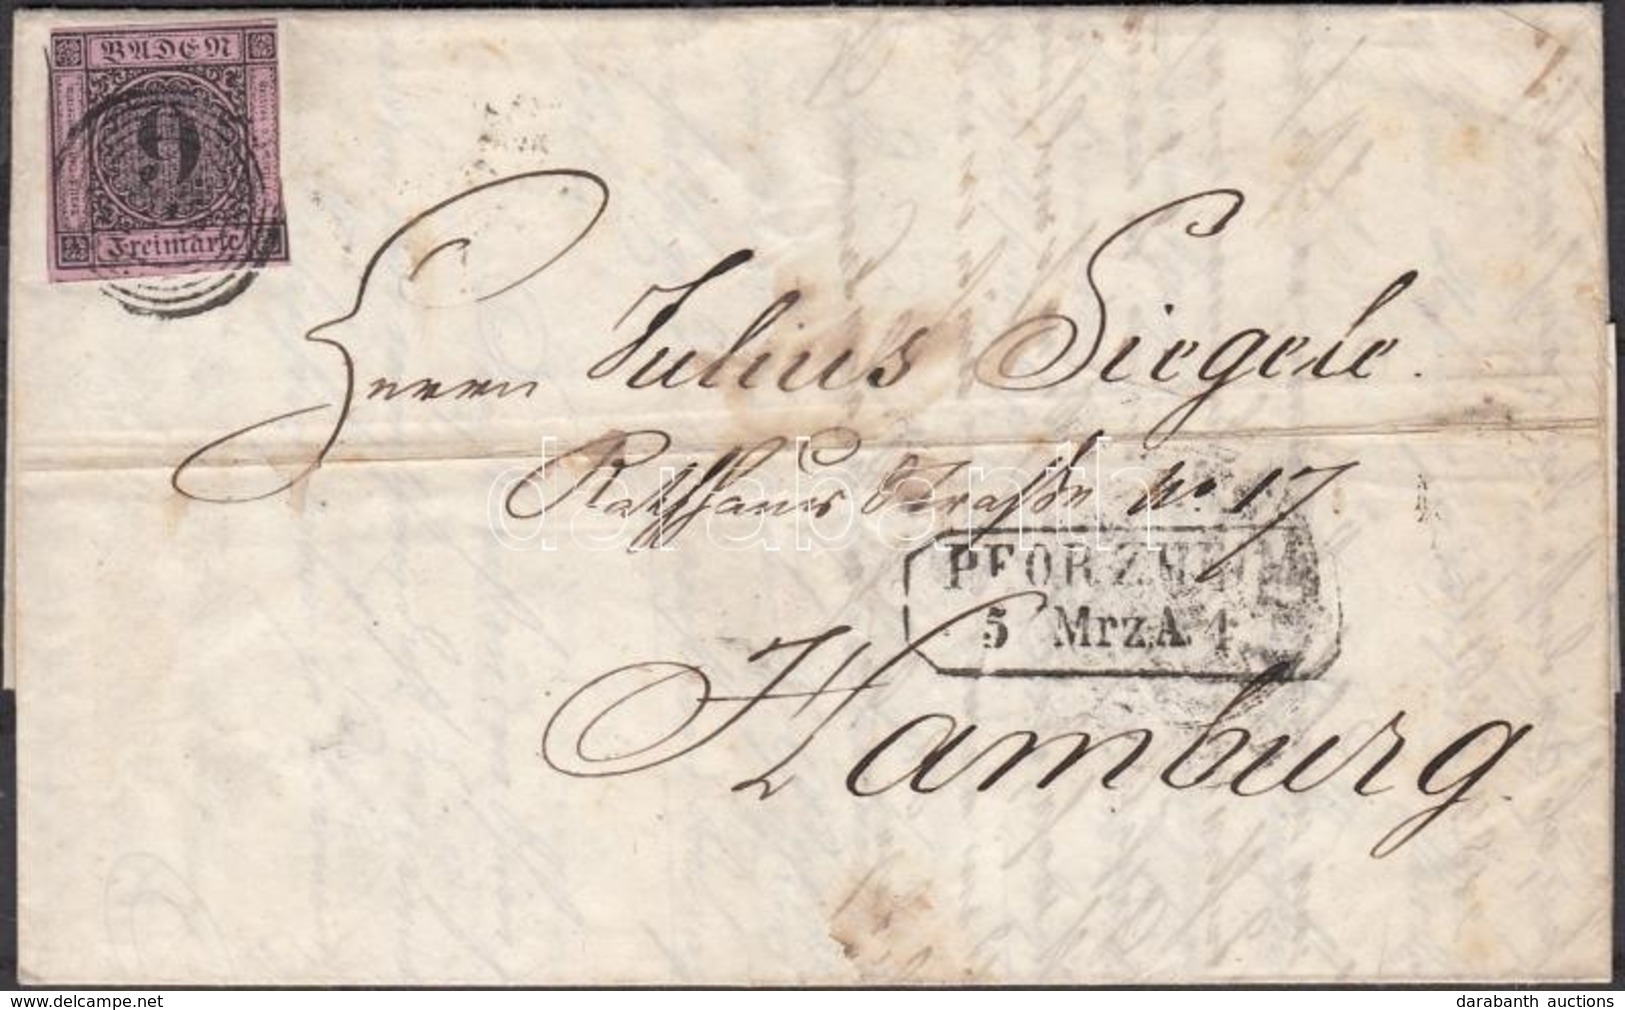 BADEN
9
Freimarke
Herrn Julius Siegele.
Rathhaus Straße No 17
PFORZHEIM
5 Mrz A. 4
Hamburg
darabanth
www.delcampe.net
darabanth auctions